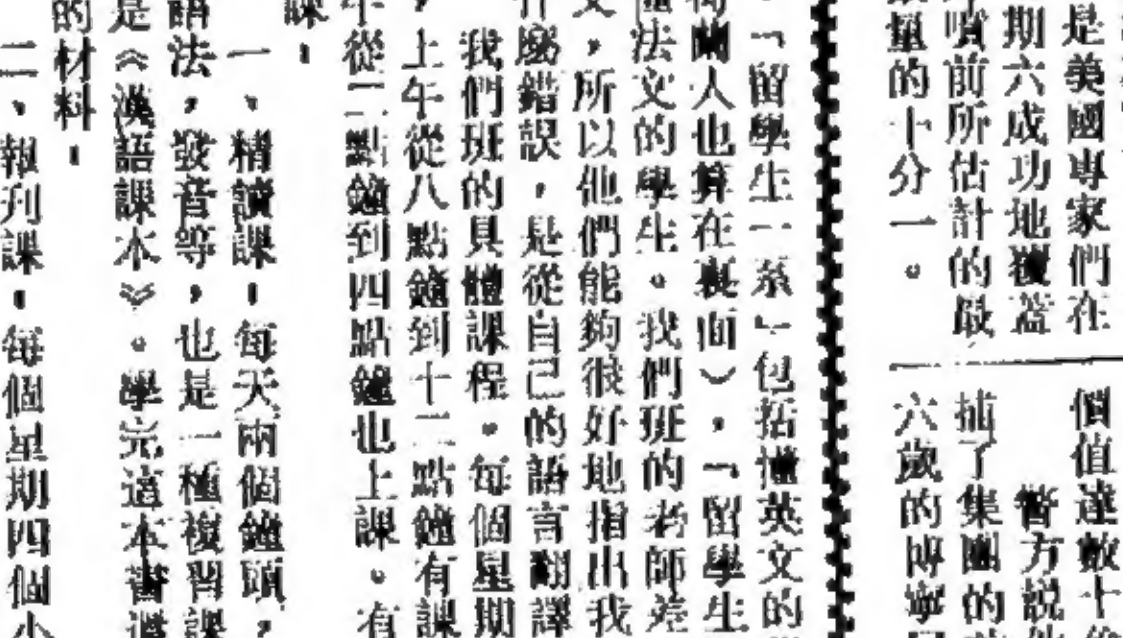 是美國專家們在
期六成功地覆蓋
噴前所估計的最
量的十分一。
價值達數十
警方説
捕了集團的
六歲的
「留學生一系」包括懂英文的
蘭人也算在裏面），「留學生
法文的學生。我們班的老師差
文，所以他們能夠很好地指出我
麼錯誤，是從自己的語言翻譯
我們班的具體課程。每個星期
，上午從八點鐘到十二點鐘有課
午從二點鐘到四點鐘也上課。有
課：
一、精讀課：每天兩個鐘頭，
語法，發音等，也是一種複習課
是《漢語課本》。學完這本書還
的材料：
二、報刊課：每個星期四個小